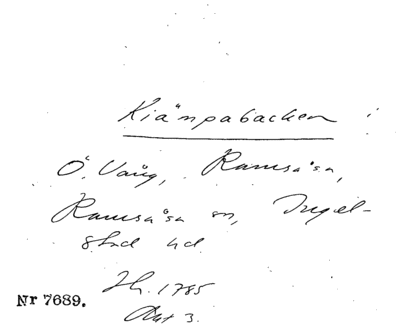 Kiämpabacken
Ö. Vång, Ramsåsa,
Ramsåsa sn, Ingel-
stad hd.
Nr 7689.
1785
Akt 3.